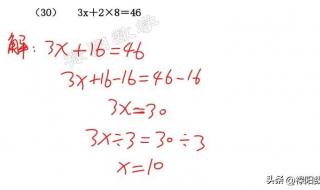 (30) 3x+2×8=46
解: 3x+16=46
3x+16-16=46-16
3x=30
3x÷3=30÷3
x=10
头条 @